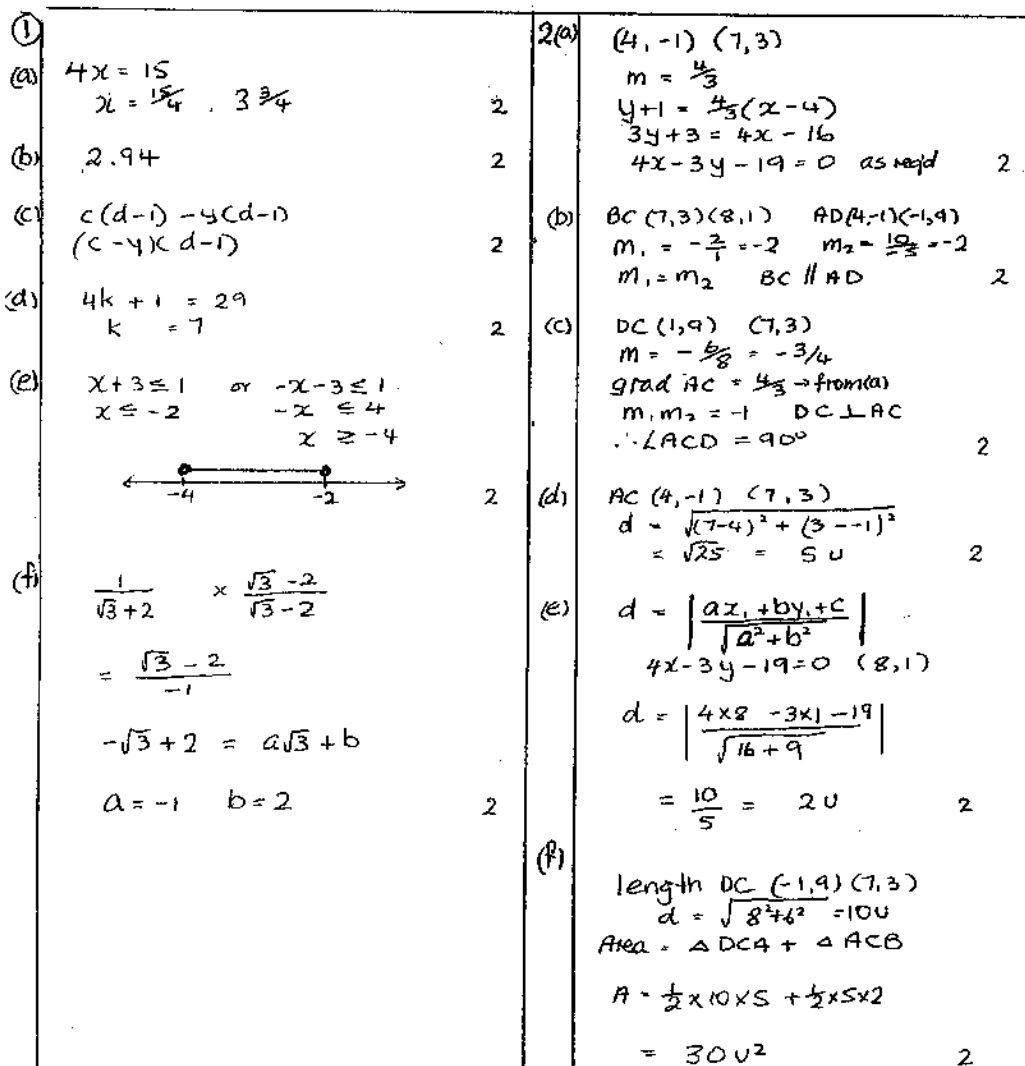 ①
(a) 4x = 15
x = 15/4 , 3 3/4 2
(b) 2.94 2
(c) c(d-1) - y(d-1)
(c - y)(d-1) 2
(d) 4k + 1 = 29
k = 7 2
(e) x+3 ≤ 1 or -x-3 ≤ 1
x ≤ -2 -x ≤ 4
x ≥ -4
-4 -2 2
(f) 1/(√3+2) × (√3-2)/(√3-2)
= (√3 - 2)/-1
-√3 + 2 = a√3 + b
a = -1 b = 2 2
2(a) (4, -1) (7, 3)
m = 4/3
y+1 = 4/3(x-4)
3y+3 = 4x - 16
4x-3y-19 = 0 as req'd 2
(b) BC (7,3)(8,1) AD(4,-1)(-1,9)
m₁ = -2/1 = -2 m₂ = 10/-5 = -2
m₁ = m₂ BC // AD 2
(c) DC (1,9) (7,3)
m = -6/8 = -3/4
grad AC = 4/3 → from(a)
m₁m₂ = -1 DC ⊥ AC
∴ ∠ACD = 90° 2
(d) AC (4,-1) (7,3)
d = √((7-4)² + (3 - -1)²)
= √25 = 5 u 2
(e) d = |(ax₁ + by₁ + c)/√(a² + b²)|
4x-3y-19=0 (8,1)
d = |(4×8 -3×1 -19)/√(16 + 9)|
= 10/5 = 2 u 2
(f)
length DC (-1,9)(7,3)
d = √(8²+6²) = 10u
Area = △ DCA + △ ACB
A = 1/2 × 10 × 5 + 1/2 × 5 × 2
= 30 u² 2